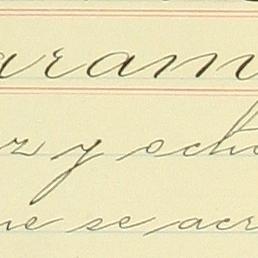 aram
z y ocho
ne se acr